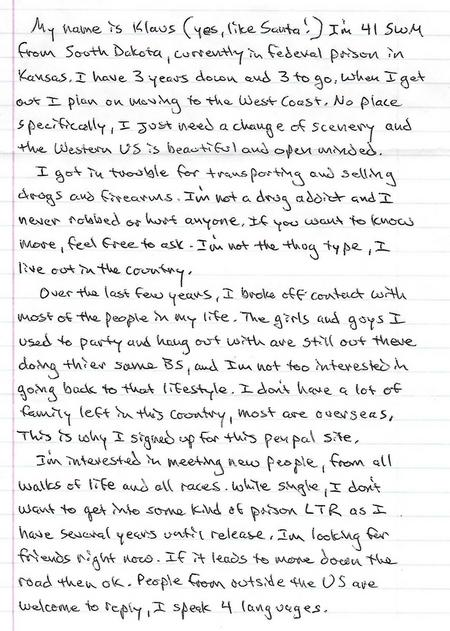 My name is Klaus (yes, like Santa!) I'm 41 SWM
from South Dakota, currently in federal prison in
Kansas. I have 3 years down and 3 to go, when I get
out I plan on moving to the West Coast. No place
specifically, I just need a change of scenery and
the Western US is beautiful and open minded.
I got in trouble for transporting and selling
drugs and firearms. I'm not a drug addict and I
never robbed or hurt anyone. If you want to know
more, feel free to ask. I'm not the thug type, I
live out in the country.
Over the last few years, I broke off contact with
most of the people in my life. The girls and guys I
used to party and hang out with are still out there
doing thier same BS, and I'm not too interested in
going back to that lifestyle. I don't have a lot of
family left in this country, most are overseas,
This is why I signed up for this penpal site.
I'm interested in meeting new people, from all
walks of life and all races. While single, I don't
want to get into some kind of prison LTR as I
have several years until release. I'm looking for
friends right now. If it leads to more down the
road then ok. People from outside the US are
welcome to reply, I speak 4 languages.